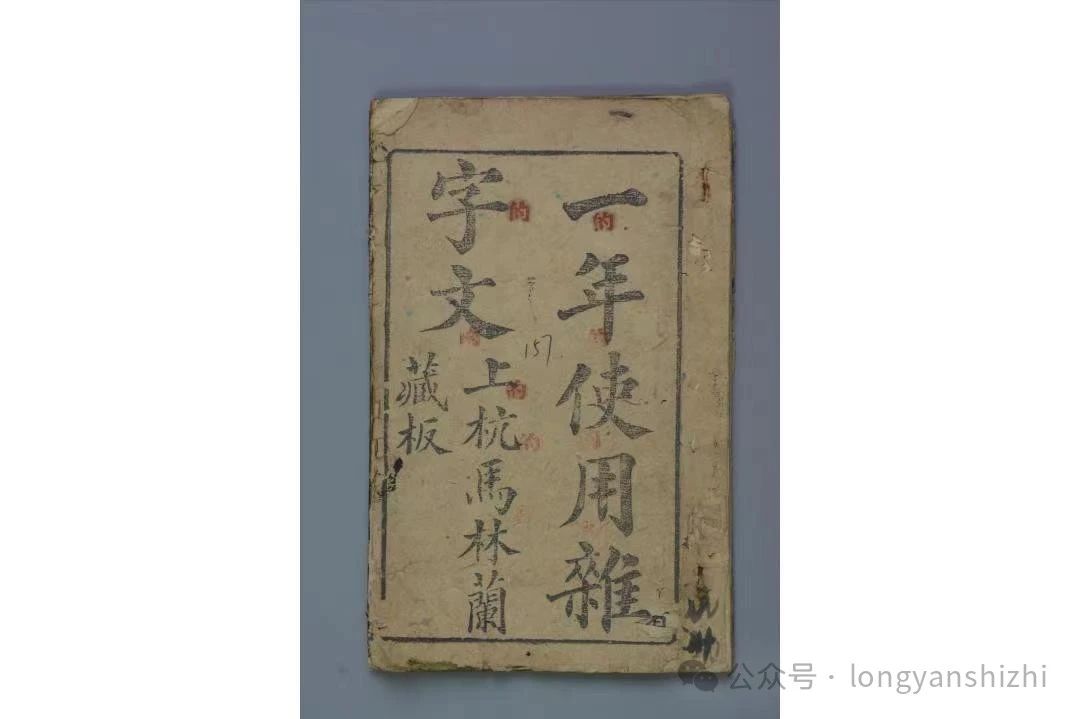 一年使用雜
字文
上杭馬林蘭
藏板
157
的
的
的
公众号 · longyanshizhi